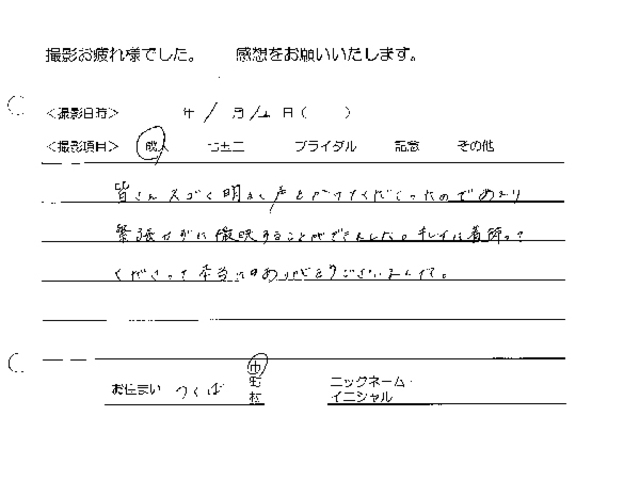 撮影お疲れ様でした。 感想をお願いいたします。
<撮影日時> 年 / 月 日( )
<撮影項目> 成人 七五三 ブライダル 記念 その他
皆さんスゴく明るく声をかけてくださったのであまり
緊張せずに撮影することができました。キレイに着飾って
くださって本当にありがとうございました。
お住まい つくば 市
町
村
ニックネーム・
イニシャル